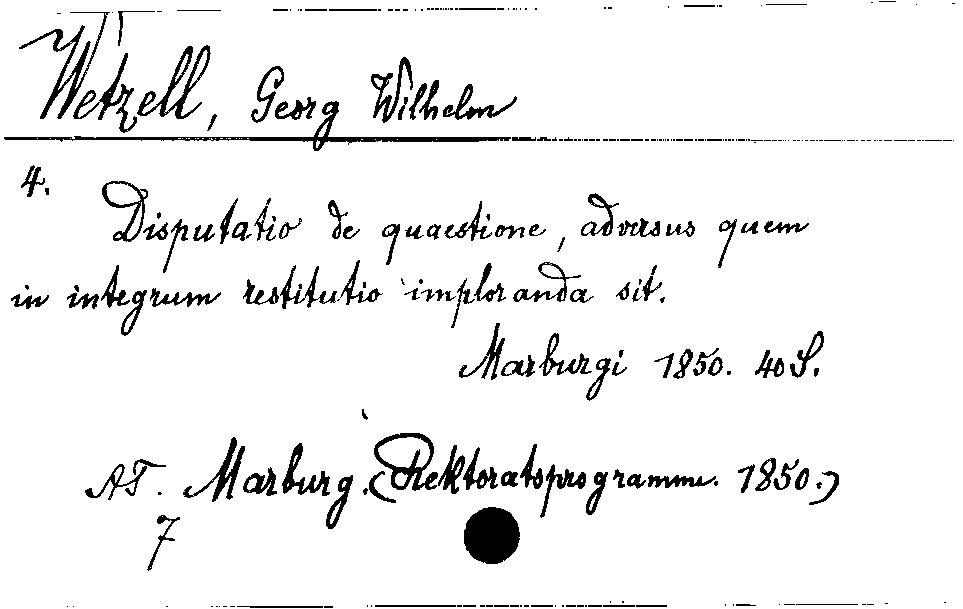 Wetzell, Georg Wilhelm
4.
Disputatio de quaestione, adversus quem
in integrum restitutio imploranda sit.
Marburgi 1850. 40 S.
AT. Marburg. (Rektoratsprogramm. 1850.)
7